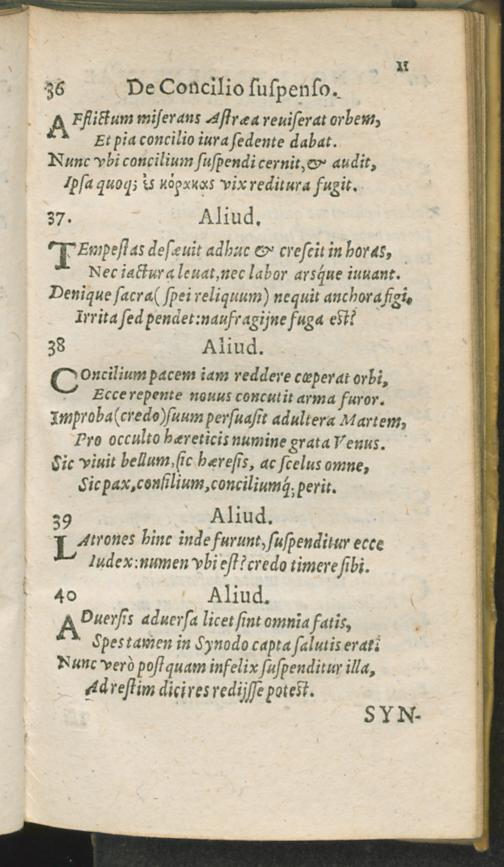 11
36 De Concilio ſuſpenſo.
AFflictum miſerans Aſtræa reuiſerat orbem,
Et pia concilio iura ſedente dabat.
Nunc vbi concilium ſuſpendi cernit, & audit,
Ipſa quoq; ἐς κόρακας vix reditura fugit.
37. Aliud.
TEmpeſtas deſæuit adhuc & creſcit in horas,
Nec iactura leuat, nec labor arsque iuuant.
Denique ſacra (ſpei reliquum) nequit anchora figi,
Irrita ſed pendet: naufragijne fuga eſt?
38 Aliud.
COncilium pacem iam reddere cœperat orbi,
Ecce repente nouus concutit arma furor.
Improba (credo) ſuum perſuaſit adultera Martem,
Pro occulto hæreticis numine grata Venus.
Sic viuit bellum, ſic hæreſis, ac ſcelus omne,
Sic pax, conſilium, conciliumq́; perit.
39 Aliud.
LAtrones hinc inde furunt, ſuſpenditur ecce
Iudex: numen vbi eſt? credo timere ſibi.
40 Aliud.
ADuerſis aduerſa licet ſint omnia fatis,
Spes tamen in Synodo capta ſalutis erat:
Nunc verò poſtquam infelix ſuſpenditur illa,
Ad reſtim dici res redijſſe poteſt.
SYN-